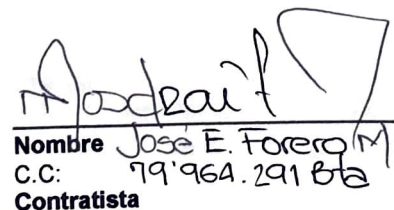 Nombre José E. Forero M
C.C: 79'964.291 Bta
Contratista